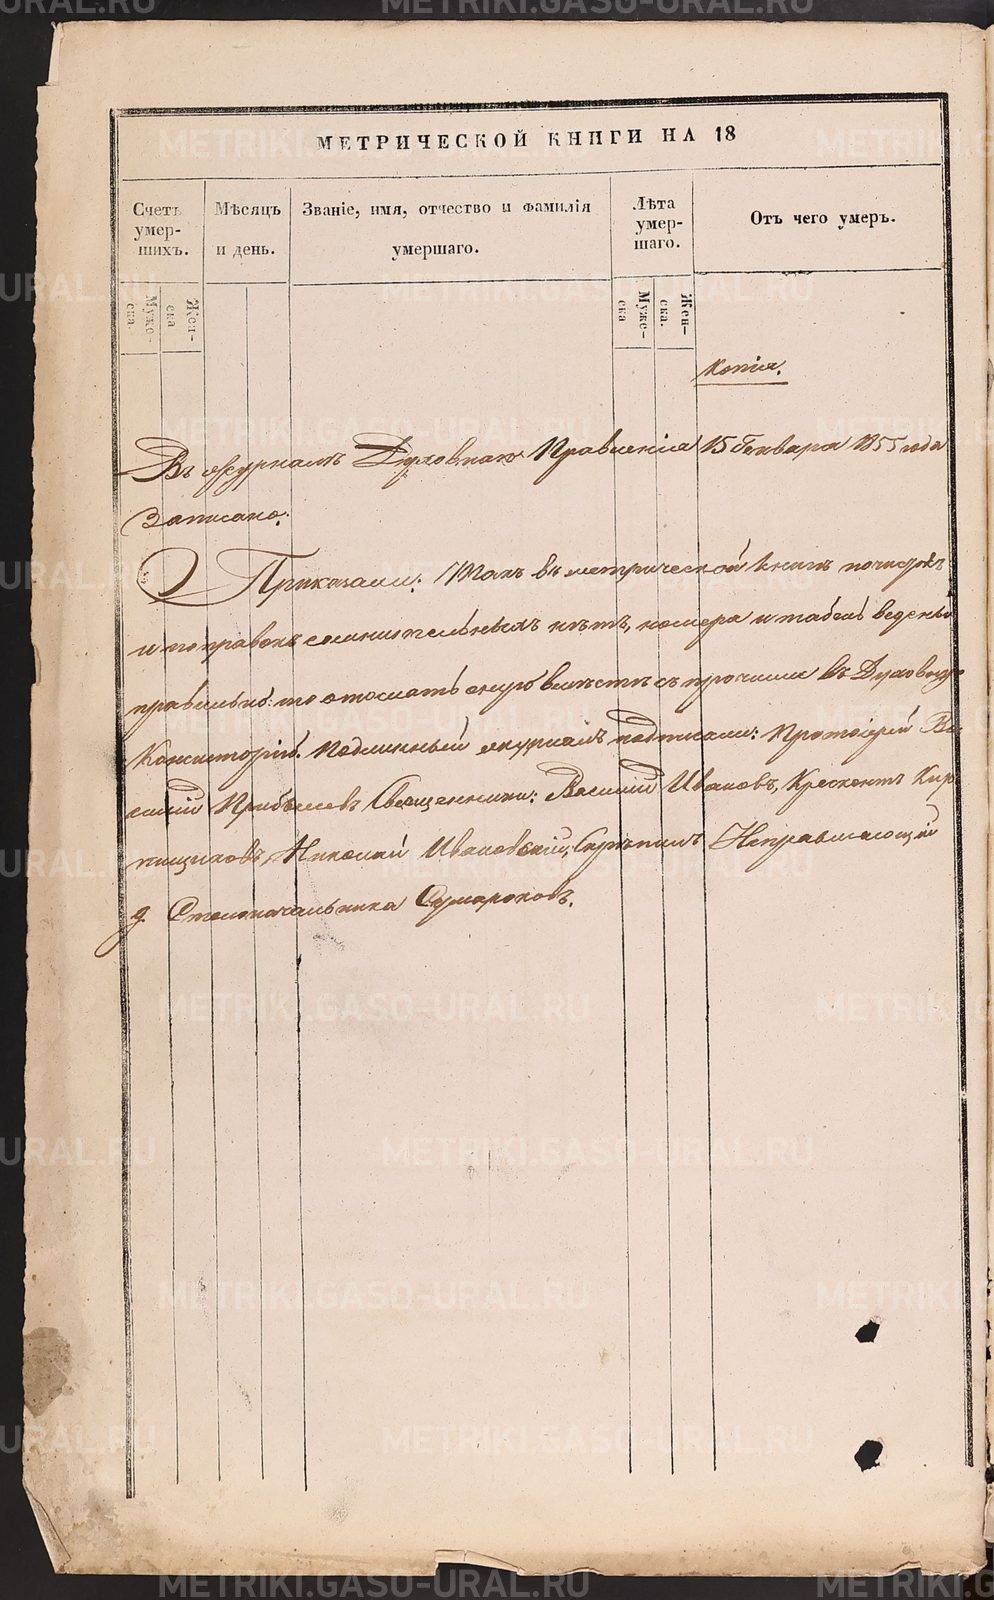 МЕТРИЧЕСКОЙ КНИГИ НА 18
Счетъ умер-шихъ.
Мѣсяцъ и день.
Званіе, имя, отчество и фамилія умершаго.
Лѣта умер-шаго.
Отъ чего умеръ.
Муже-ска.
Жен-ска
Муже-ска
Жен-ска.
Копія.
Въ журналѣ Духовнаго Правленія 15 Генваря 1855 года
Записано:
Приказали: Какъ въ метрической книгѣ почистокъ
и поправокъ сомнительныхъ нѣтъ, номера и табель ведены
правильно: то отослать оную вмѣстѣ съ прочими въ Духовную
Консисторію. Подлинный журналъ подписали: Протоіерей Ва
силій Прибылевъ Священники: Василій Ивановъ, Крескентъ Кир
пищиковъ, Николай Ивановскій, Скрѣпилъ Неправляющій
д. Столоначальника Сумароковъ.
METRIKI.GASO-URAL.RU